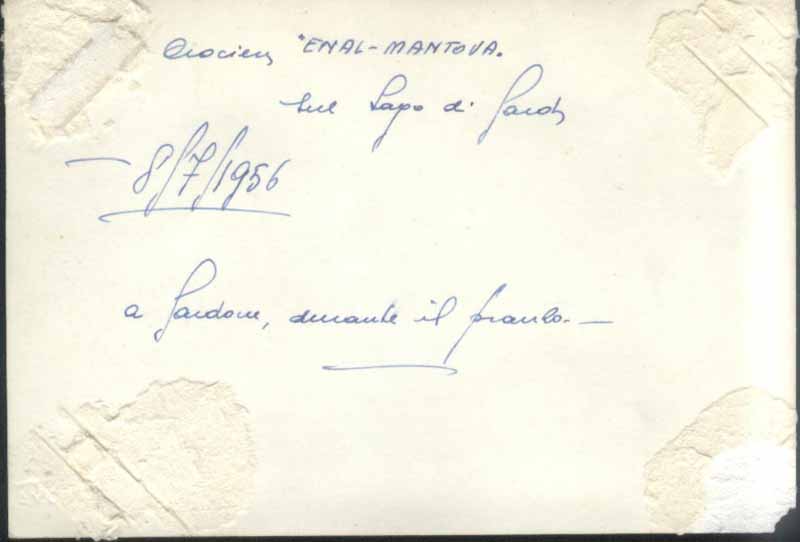 Crociera "ENAL-MANTOVA.
sul Lago di Garda
— 8/7/1956
a Gardone, durante il pranzo. —